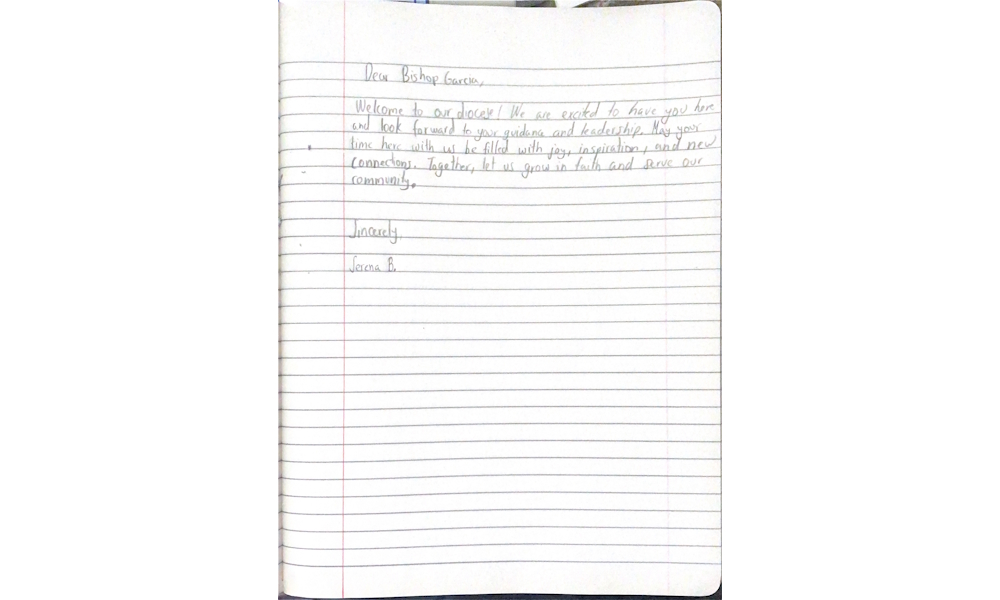 Dear Bishop Garcia,
Welcome to our diocese! We are excited to have you here
and look forward to your guidance and leadership. May your
time here with us be filled with joy, inspiration, and new
connections. Together, let us grow in faith and serve our
community.
Sincerely,
Serena B.